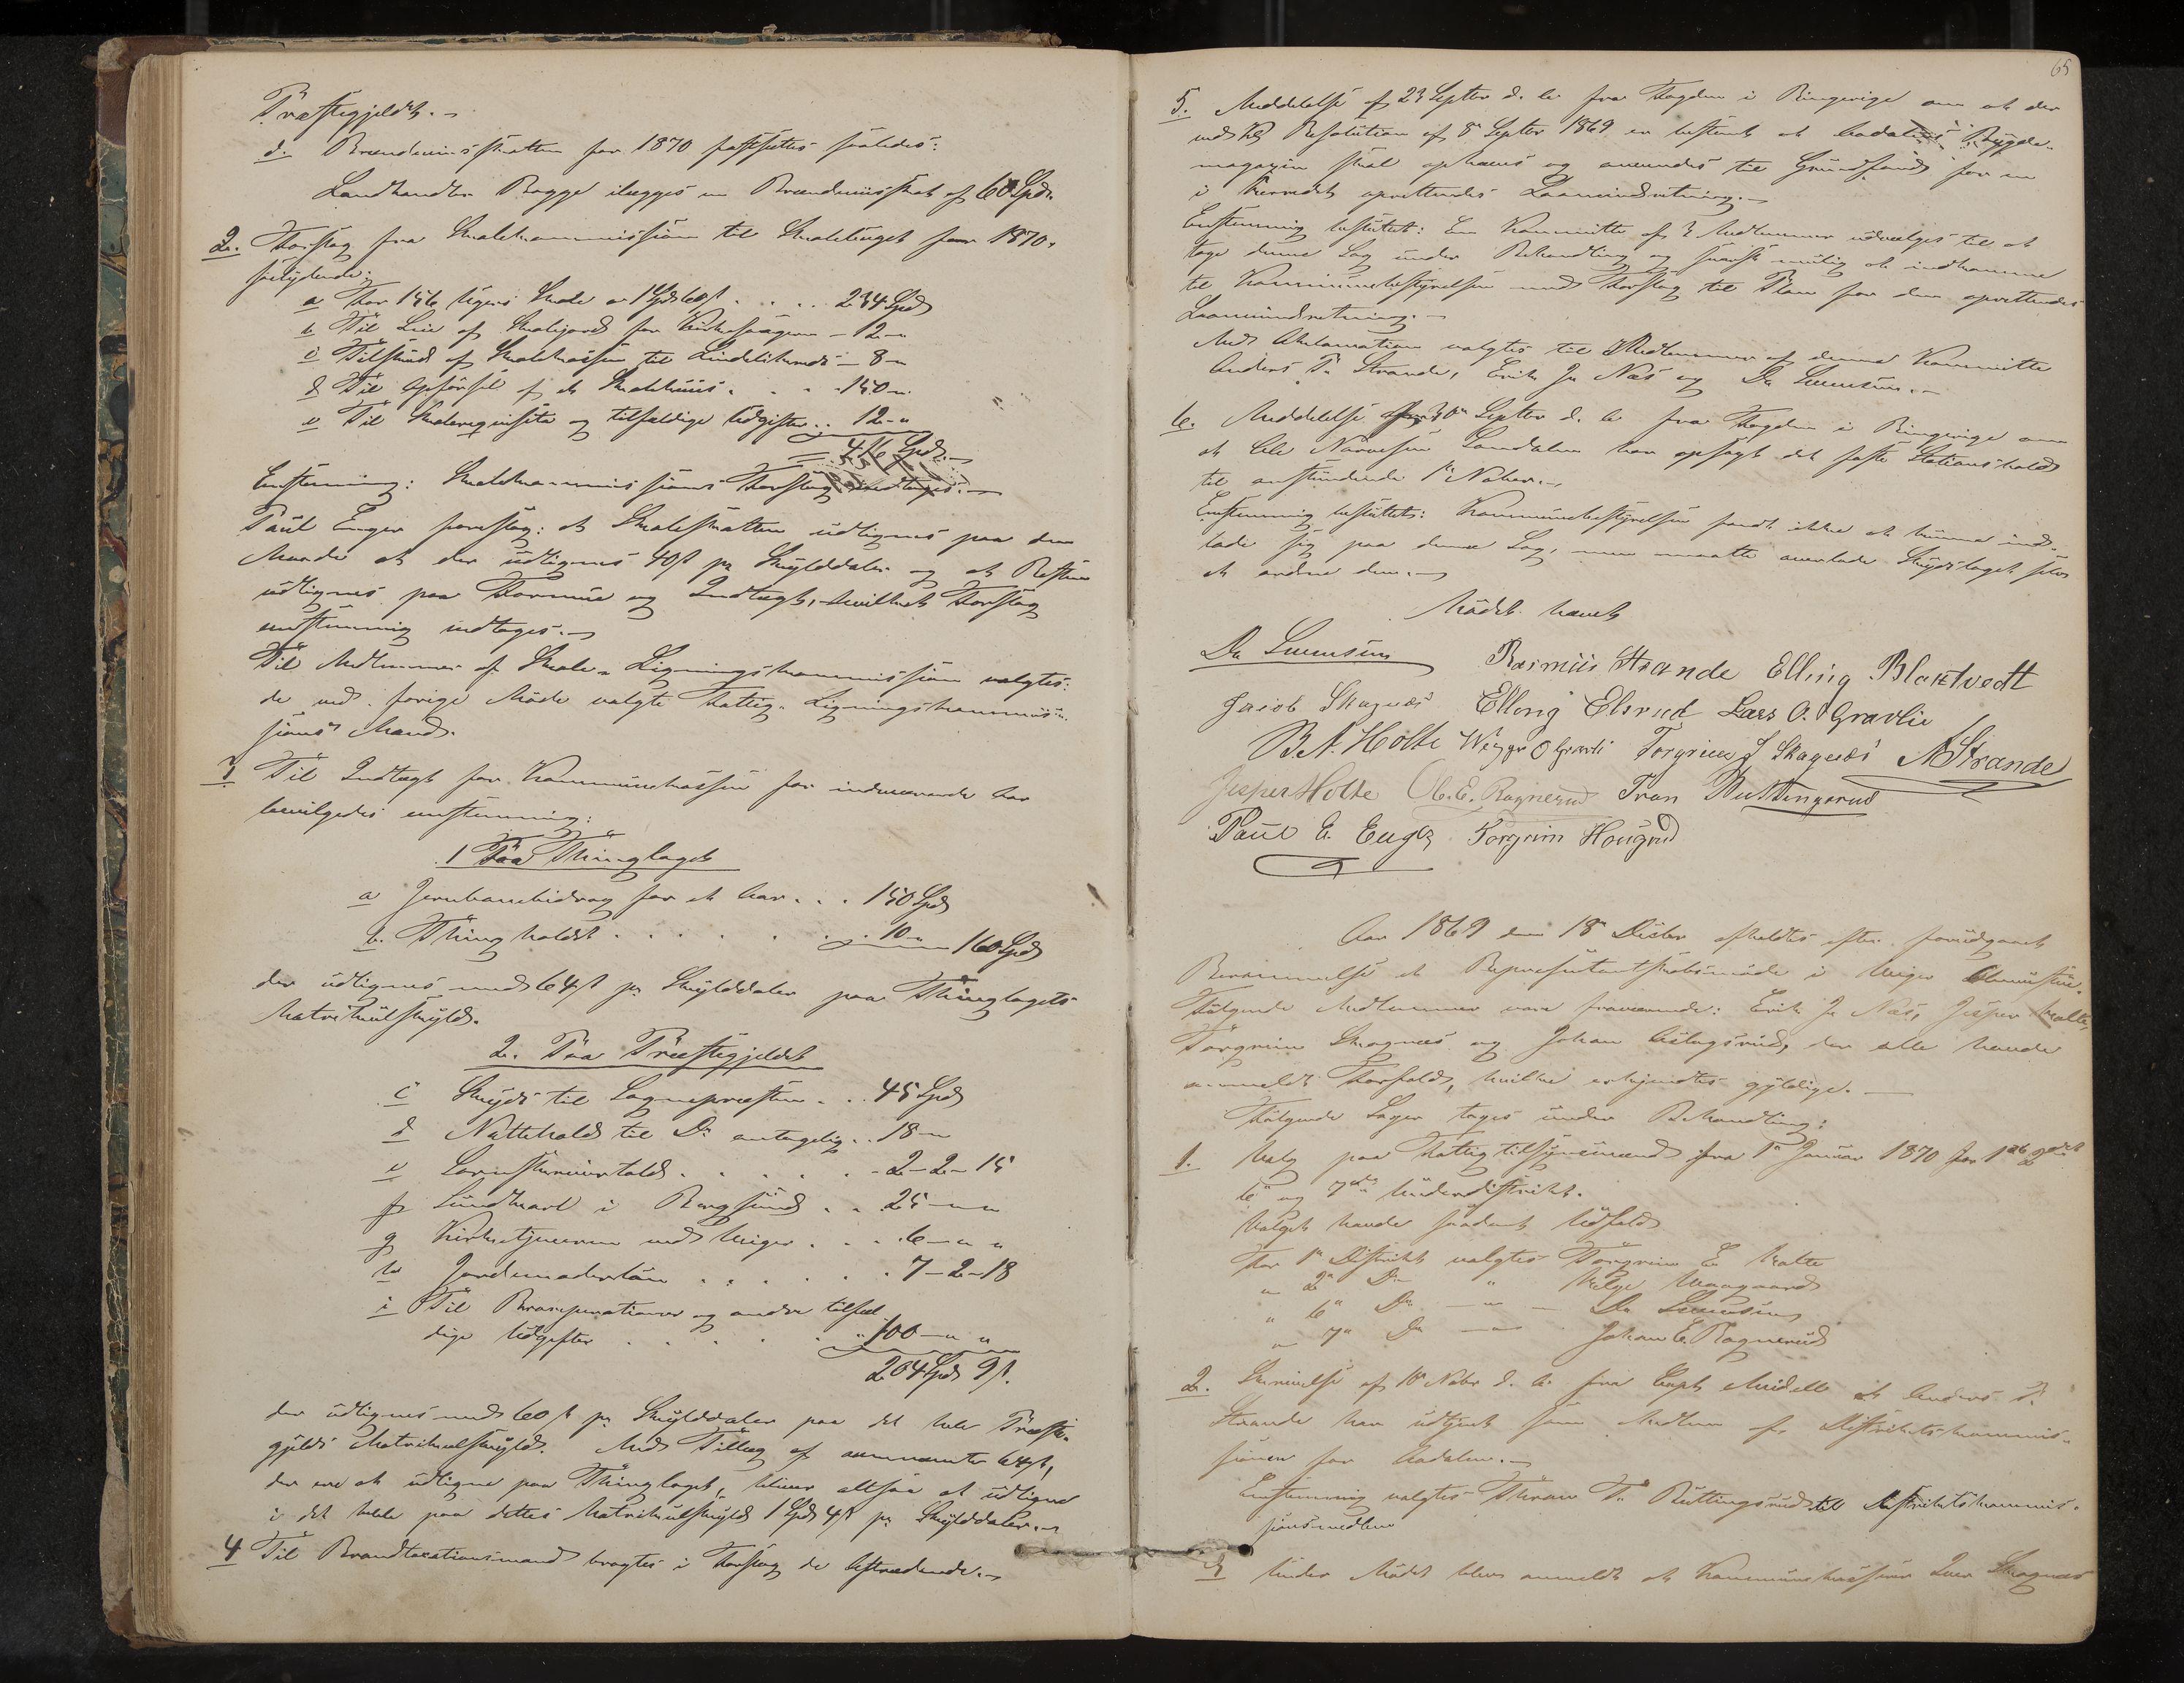 Præstegjeldet.
d. Brændeviinsskatten for 1870 fastsættes saaledes:
Landhandler Bagge ilægges en Brændeviinsskat af 60 Spd.
2. Forslag fra Skolekommissionen til Skolebudget for 1870,
saalydende:
a For 156 Ugers Skole a 1 Spd 60 s . . . . 234 Spd
b Til Leie af Skolejord for Kirkesangeren - 12 - "
c Tilskud af Skolekassen til - 8 - "
d Til Opførsel af et Skolehuus . . . - 150 - "
e Til Skolerequisita og tilfældige Udgifter . . 12 - "
416 Spd.
Enstemmig: Skolekommissionens Forslag indtages.
Paul Enger foreslog: at Skoleskatten udlignes paa den
Maade at der udlignes 40 s pr Skylddaler og at Resten
udlignes paa Formue og Indtægt, hvilket Forslag
enstemmig indtoges.
Til Medlemmer af Skole-Ligningskommissionen valgtes:
de ved forrige Møde valgte Fattig-Ligningskommis-
sions Mænd.
3 Til Indtægt for Kommunekassen for indeværende Aar
bevilgedes enstemmig:
1 Paa Thinglaget
a Jernbanebidrag for et Aar . . . 150 Spd
b. Thingholdet . . . . . 10 " 160 Spd
der udlignes med 64 s pr Skylddaler paa Thinglagets
Matrikulskyld.
2. Paa Præstegjeldet
c Skyds til Sognepræsten . . . 45 Spd
d Nattehold til Do . . 18 - "
e . . . . . - 2 - 2 - 15
f Sundkarl i Bergsund . . 25 - " - "
g Kirketjeneren ved Viger . . . 6 - " "
h Jordemoderløn . . . . . . 7 - 2 - 18
i Til og andre tilfæl-
dige Udgifter . . . . . . " 100 - " "
204 Spd 9 s.
der udlignes med 60 s pr Skylddaler paa det hele Præste-
gjelds Matrikulskyld. Med Tillæg af ovennævnte 64 s,
der ere at udligne paa Thinglaget, bliver altsaa at udligne
i det hele paa dettes Matrikulskyld 1 Spd 4 s pr Skylddaler.
4 Til Brandtaxationsmænd bragtes i Forslag de Aftrædende.
65
5. Meddelelse af 23 Septbr d. A. fra Fogden i Ringerige om at der
ved Kgl Resolution af 8 Septbr 1869 er bestemt at Aadalens Bygde-
magazin skal ophæves og anvendes til Grundfond for en
i Herredet oprettendes Laaneindretning.
Enstemmig besluttet: En Kommitte af 3 Medlemmer udvælges til at
tage denne Sag under Behandling og snarest mulig at indkomme
til Kommunebestyrelsen med Forslag til Plan for den oprettendes
Laaneindretning.
Med Aklamation valgtes til Medlemmer af denne Kommitte
Anders P. Strande, Erik J. Næs og Da Svensen.
6. Meddelelse fra 30 Septbr d. A. fra Fogden i Ringerige om
at Ole Narvesen Sandalen har opsagt det faste Stationshold
til anstundende 1 Novbr.
Enstemmig besluttet: Kommunebestyrelsen fandt ikke at kunne ind-
lade sig paa denne Sag, men maatte overlade Skydslaget selv
at ordne den.
Mødet hævet
Da Svensen Rasmus Strande Elling Blaktvedt
Jacob Skagnæs Elling Elsrud Lars O. Gravlie
B.N. Holte Wigger O Gravli Torgrim J Skagnæs A Strande
Jesper Holte Ol. E. Ragnerud Tron Buttingsrud
Paul E. Enger Torgrim Hougrud
Aar 1869 den 18 Decbr afholdtes efter forudgaaet
Berammelse et Repræsentantskabsmøde i Viger Almueskole.
Følgende Medlemmer vare fraværende: Erik J. Næs, Jesper Holte,
Torgrim Skagnæs og Johan Aslagsrud, der alle havde
anmeldt Forfald, hvilke erkjendtes gyldige.
Følgende Sager toges under Behandling:
1. Valg paa Fattigtilsynsmænd fra 1 Januar 1870 for 1ste 2det
6 og 7de Underdistrikt.
Valget havde saadant Udfald
For 1 Distrikt valgtes Torgrim E. Holte
" 2 Do " Helge Vaagaard
" 6 Do - " - Da Svensen
" 7 Do - " Johan E. Ragnerud
2. Skrivelse af 10 Novbr d. A. fra Capt. at Anders P.
Strande har udtjent som Medlem af Distriktskommis-
sionen for Aadalen.
Enstemmig valgtes Thron T. Buttingsrud til Distriktskommis-
sionsmedlem
3 Under Mødet blev anmeldt at Kommunekasserer Iver Skagnæs